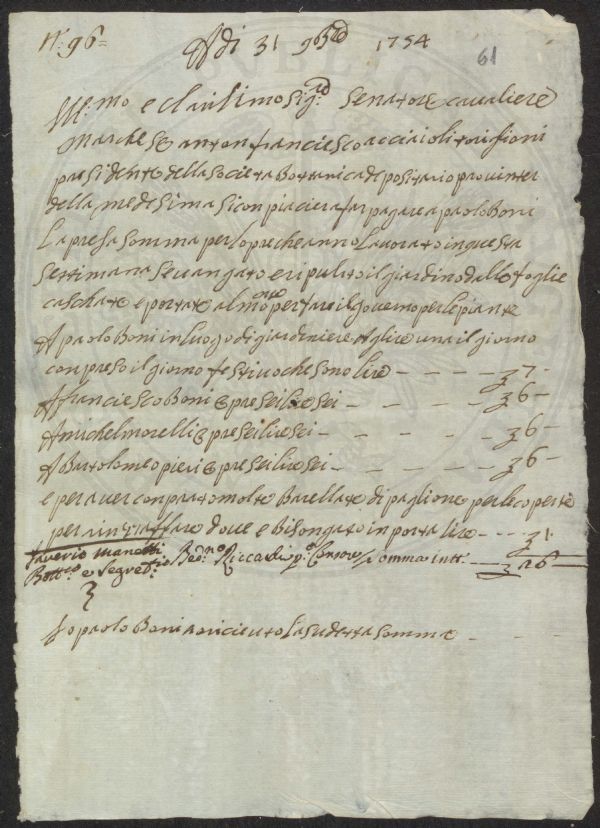 N.° 96=
Adi 31 9bre 1754
61
Ill.mo e Clarissimo Sig.re Senatore cavaliere
Marchese anton franciesco acciaioli torifioni
presidente della Societa Bottanica depositario provinter
della medesima si conpiaciera far pagare a paolo Boni
la presa somma per lopre che anno lavorato in questa
settimana se vangato e ripulito il giardino dalle foglie
caschate e portate al monte per fare il governo per le piante
A paolo Boni in luogo di giardiniere a lire una il giorno
conpreso il giorno festivo che sono lire - - - - - £ 7
A franciesco Boni opre sei lire sei - - - - - £ 6
A michel morelli opre sei lire sei - - - - - £ 6
A Bartolomeo pieri opre sei lire sei - - - - - £ 6
e per aver conprato molte Barellate di paglione per le coperte
per dove e bisongato inporta lire - - - £ 1
Saverio Manetti
Bott.co e Segret.rio Bed.no Riccardi p.o Censore Somma in tt. - £ 26
Io paolo Boni o ricieuto la sudetta somma - - -